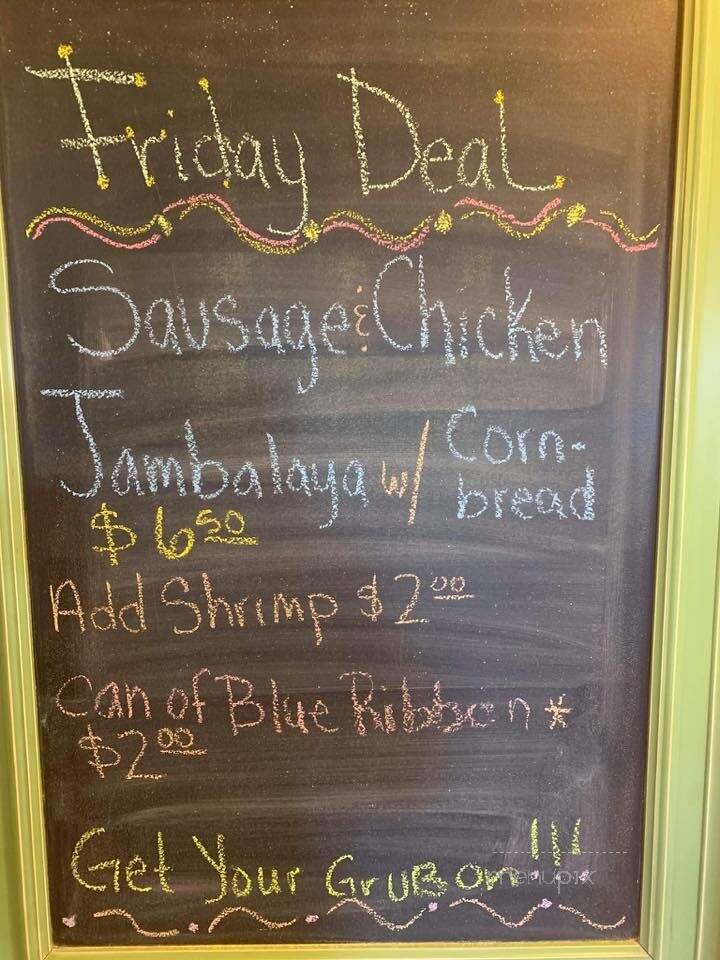 Friday Deal
Sausage & Chicken
Jambalaya w/ Corn-
bread
$6.50
Add Shrimp $2.00
Can of Blue Ribbon *
$2.00
Get Your GruB on!!!
menupix